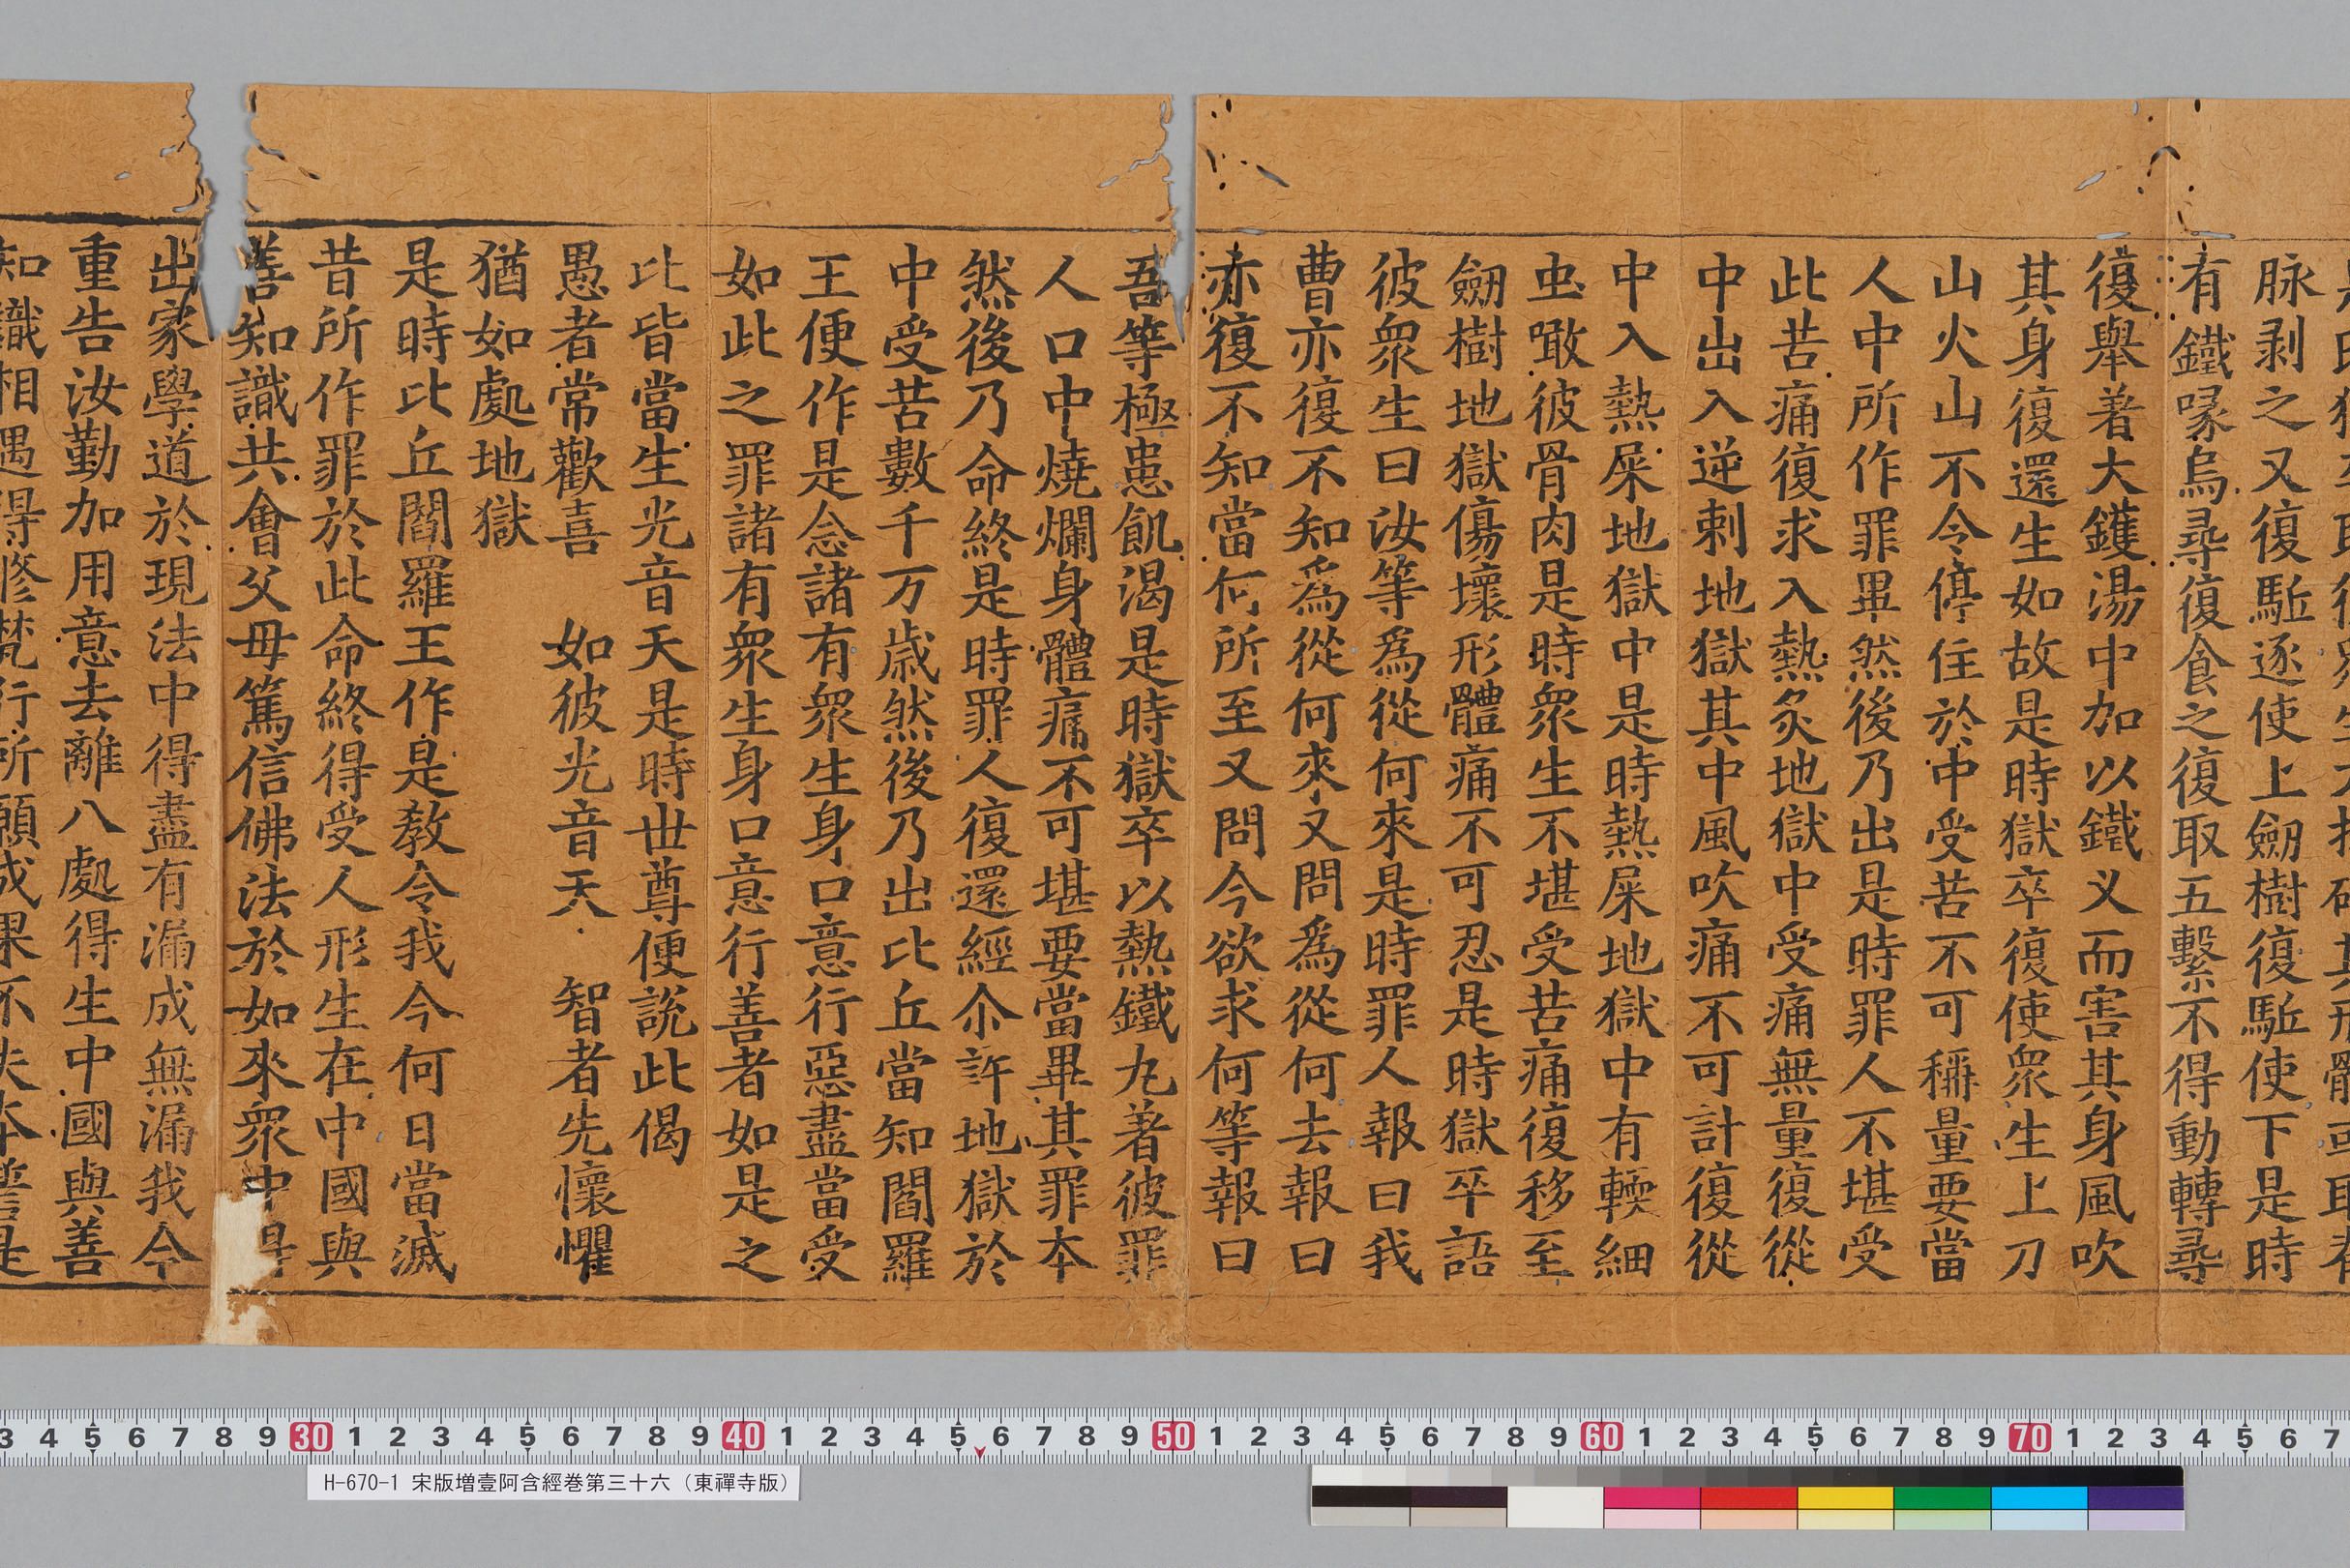 脉剥之又復駈逐使上劒樹復駈使下是時
有鐵喙烏尋復食之復取五繫不得動轉尋
復舉著大鑊湯中加以鐵叉而害其身風吹
其身復還生如故是時獄卒復使衆生上刀
山火山不令停住於中受苦不可稱量要當
人中所作罪畢然後乃出是時罪人不堪受
此苦痛復求入熱灸地獄中受痛無量復從
中出入逆刺地獄其中風吹痛不可計復從
中入熱屎地獄中是時熱屎地獄中有輭細
虫噉彼骨肉是時衆生不堪受苦痛復移至
劒樹地獄傷壞形體痛不可忍是時獄卒語
彼衆生曰汝等爲從何來是時罪人報曰我
曹亦復不知爲從何來又問爲從何去報曰
亦復不知當何所至又問今欲求何等報曰
吾等極患飢渴是時獄卒以熱鐵丸著彼罪
人口中燒爛身體痛不可堪要當畢其罪本
然後乃命終是時罪人復還經尒許地獄於
中受苦數千万歲然後乃出比丘當知閻羅
王便作是念諸有衆生身口意行惡盡當受
如此之罪諸有衆生身口意行善者如是之
比皆當生光音天是時世尊便說此偈
愚者常歡喜　如彼光音天　智者先懷懼
猶如處地獄
是時比丘閻羅王作是教令我今何日當滅
昔所作罪於此命終得受人形生在中國與
善知識共會父母篤信佛法於如來衆中得
出家學道於現法中得盡有漏成無漏我今
重告汝勤加用意去離八處得生中國與善
知識相遇得修梵行所願成果不失本誓是
3 4 5 6 7 8 9 30 1 2 3 4 5 6 7 8 9 40 1 2 3 4 5 6 7 8 9 50 1 2 3 4 5 6 7 8 9 60 1 2 3 4 5 6 7 8 9 70 1 2 3 4 5 6 7
H-670-1 宋版増壹阿含經巻第三十六（東禪寺版）